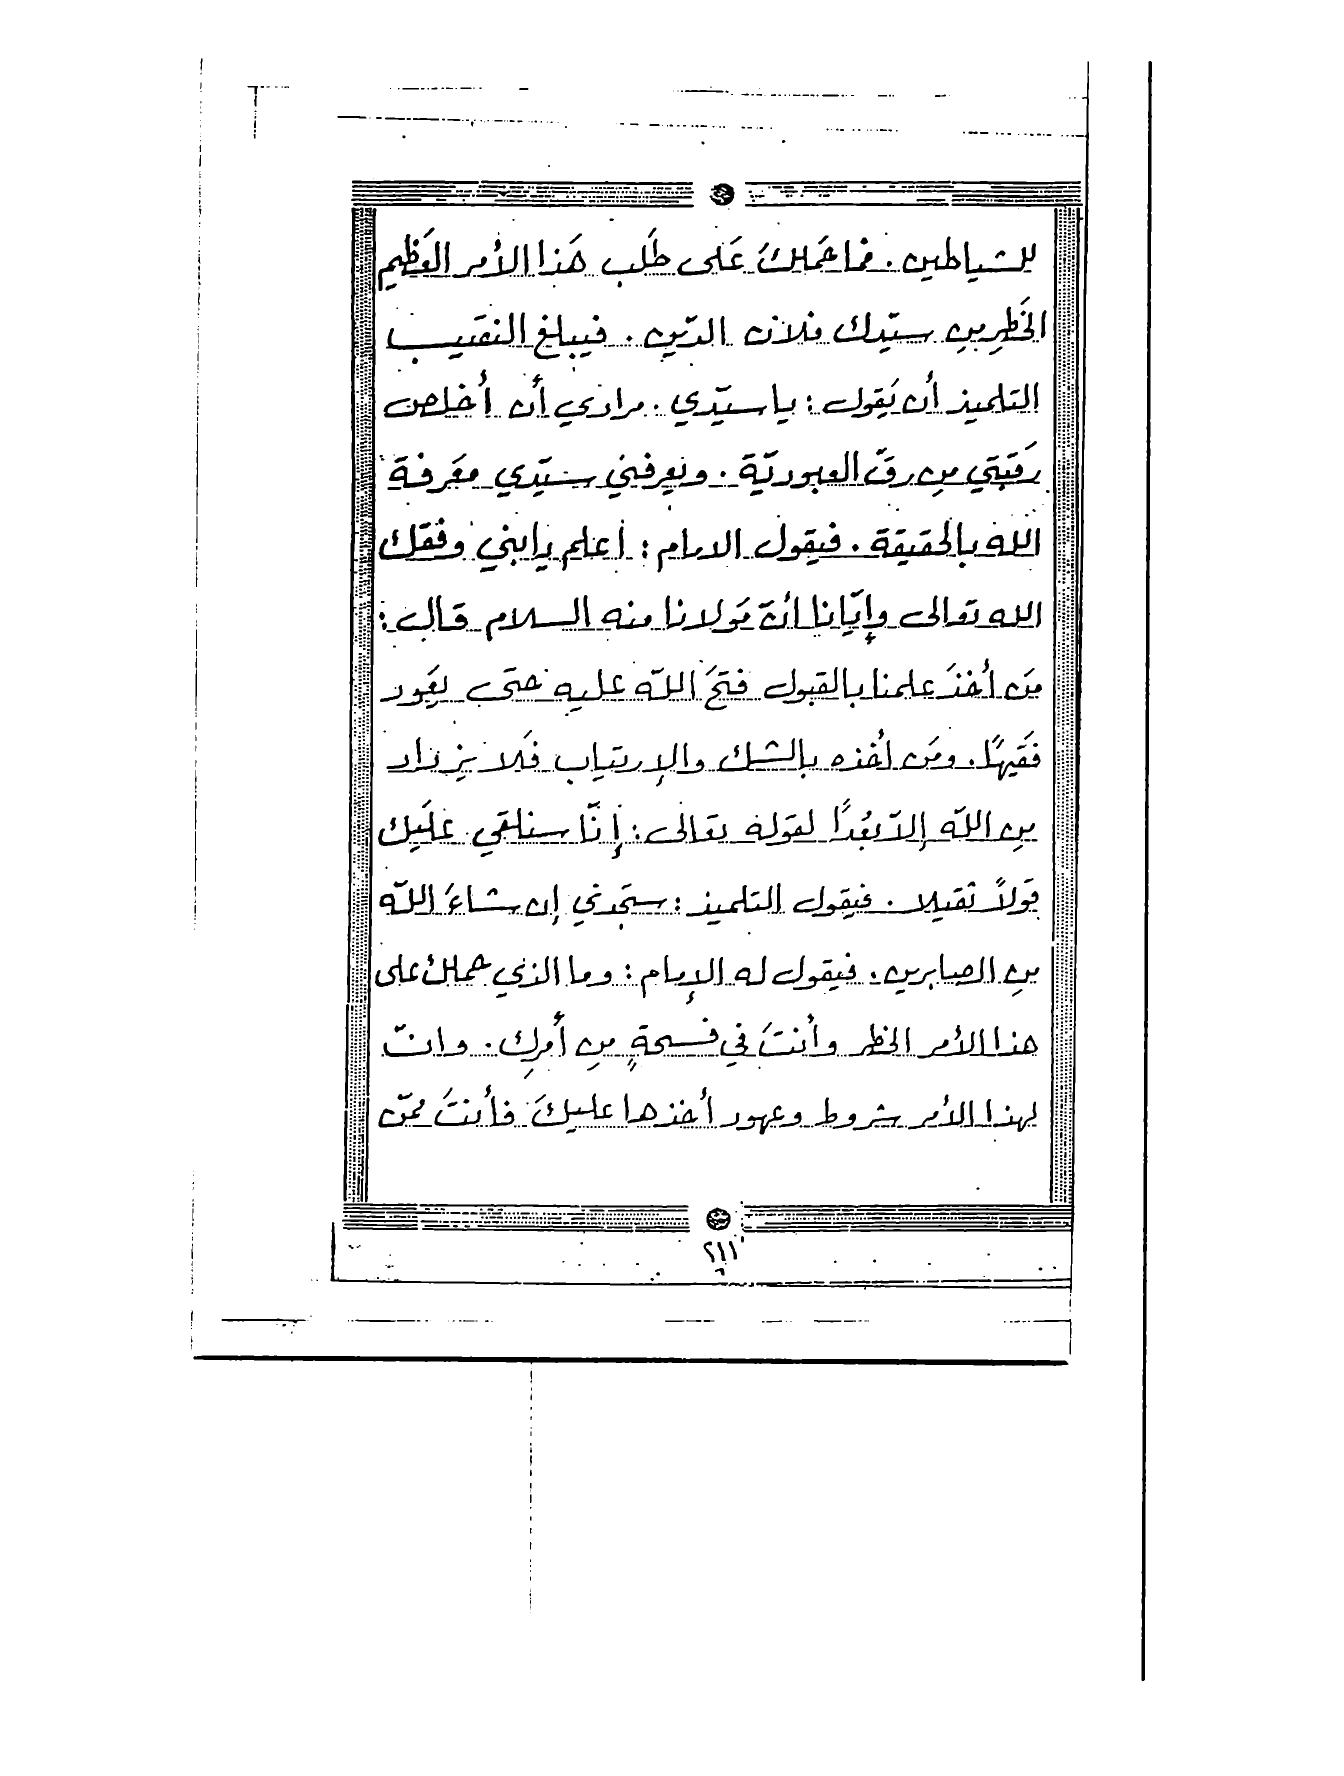 للشياطين . فما حَملكَ عَلى طَلب هَذا الأمر العَظيم
الخَطِر مِن سيّدك فلان الدّين . فيبلغ النقيب
التلميذ أن يَقول : يا سيّدي . مرادي أن أخلص
رَقبَتي مِن رقّ العبوديّة . ويعرفني سيّدي معَرفة
الله بالحقيقة . فيقول الامام : اعلم يا ابني وفقك
الله تعالى وإيّانا أنّ مَولانا منه السلام قال :
مَن أخذَ علمنا بالقبول فتحَ اللّه عليه حتّى يعَود
فقَيهًا . ومَن أخذه بالشك والإرتياب فَلا يزداد
مِن اللّه إلاّ بُعدًا لقوله تعالى : إنّا سنلقي عَليك
قولاً ثقيلا . فيقول التلميذ : ستجدني إن شاءَ اللّه
مِن الصابرين . فيقول له الإمام : وما الذي حملك على
هذا الأمر الخطر وأنتَ في فسحةٍ مِن أمرِك . وانّ
لهذا الأمر شروط وعهود أخذها عليكَ فأنتَ ممّن
٢١١